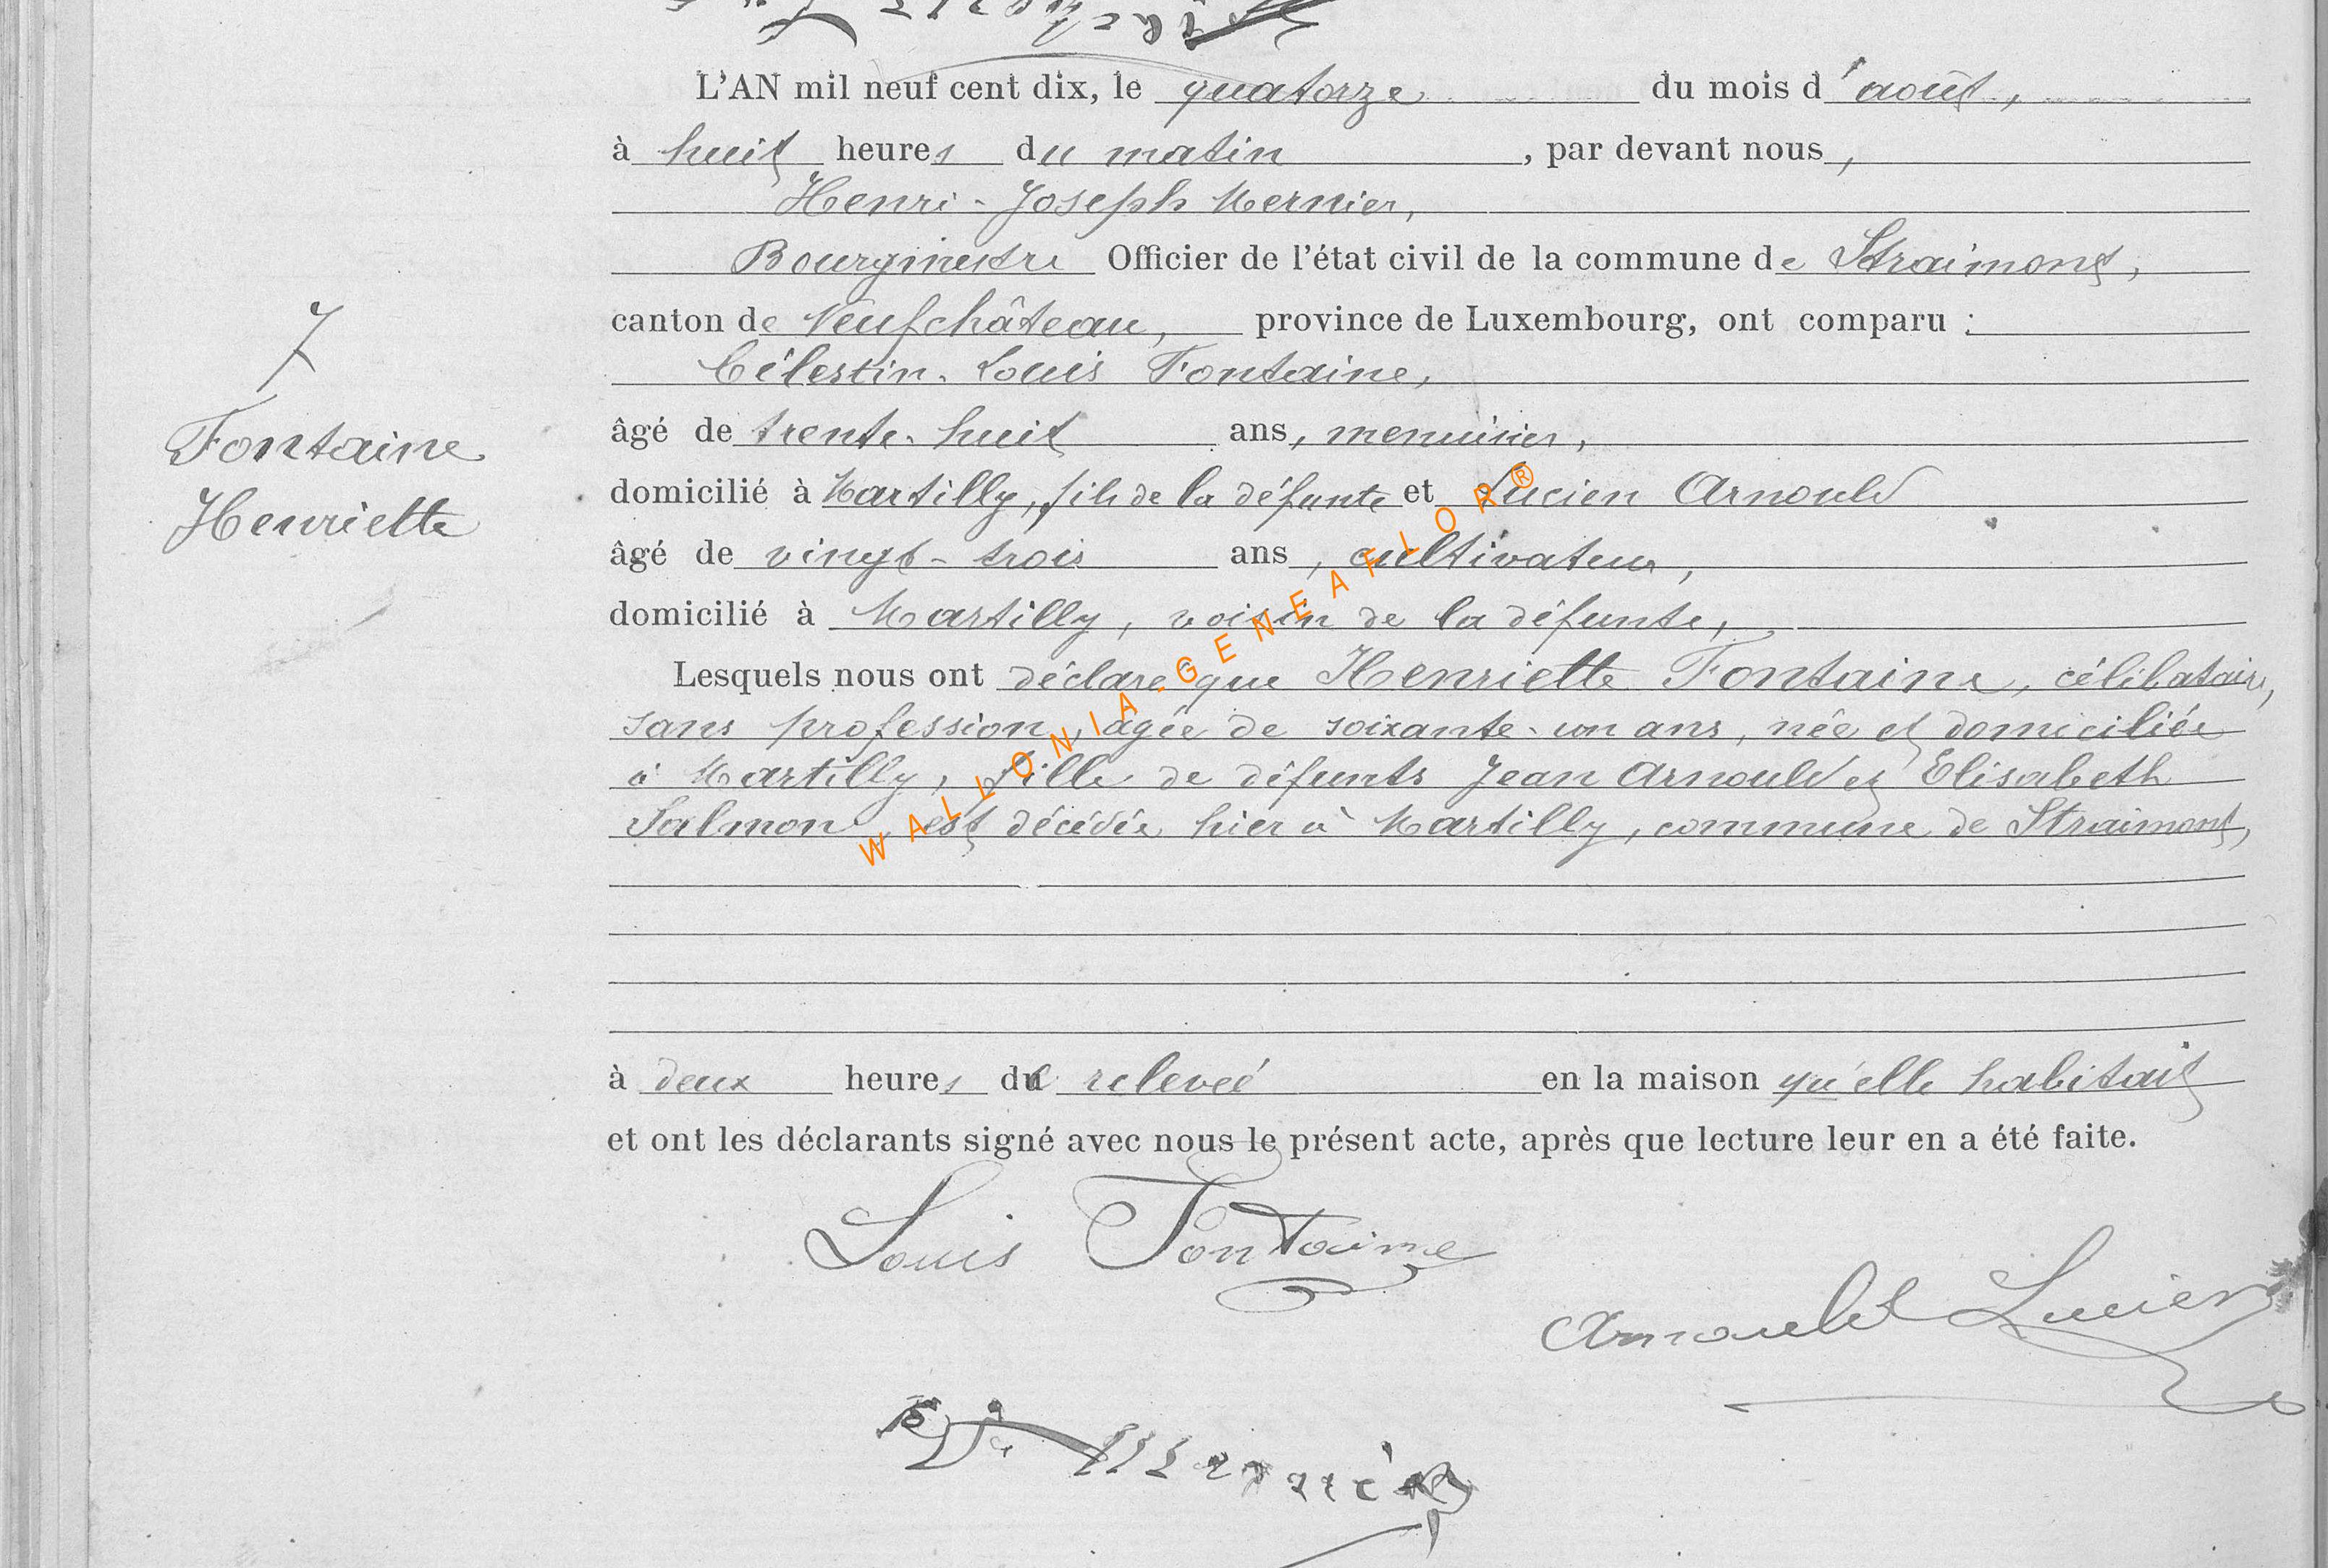 L'AN mil neuf cent dix, le quatorze du mois d'août,
à huit heures du matin, par devant nous,
Henri-Joseph Mernier,
Bourgmestre Officier de l'état civil de la commune de Straimont,
canton de Neufchâteau, province de Luxembourg, ont comparu :
Célestin-Louis Fontaine,
âgé de trente-huit ans, menuisier,
domicilié à Martilly, fils de la défunte et Lucien Arnould
âgé de vingt-trois ans, cultivateur,
domicilié à Martilly, voisin de la défunte,
7
Fontaine
Henriette
Lesquels nous ont déclaré que Henriette Fontaine, célibataire,
sans profession, agée de soixante-un ans, née et domiciliée
à Martilly, fille de défunts Jean Arnould et Elisabeth
Salmon, est décédée hier à Martilly, commune de Straimont,
à deux heures de relevée en la maison qu'elle habitait
et ont les déclarants signé avec nous le présent acte, après que lecture leur en a été faite.
Louis Fontaine
Arnould Lucien
Mernier
WALLONIA-GENEAFLOR®